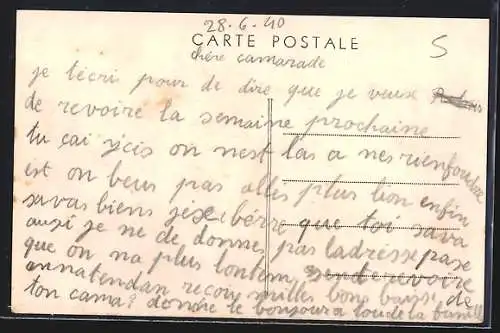 28-6-40
CARTE POSTALE
5
chère camarade
je técri pour de dire que je veux
de revoire la semaine prochaine
tu çai ycis on nest las a nes rien foudre
est on beus pas alles plus lion enfin
savas biens jéxebérre que toi sava
ausi je ne de donnes pas ladresse pase
que on na plus lontem de revoire
annatendan recois milles bons baise de
ton cama? donne le bonsour a toude la